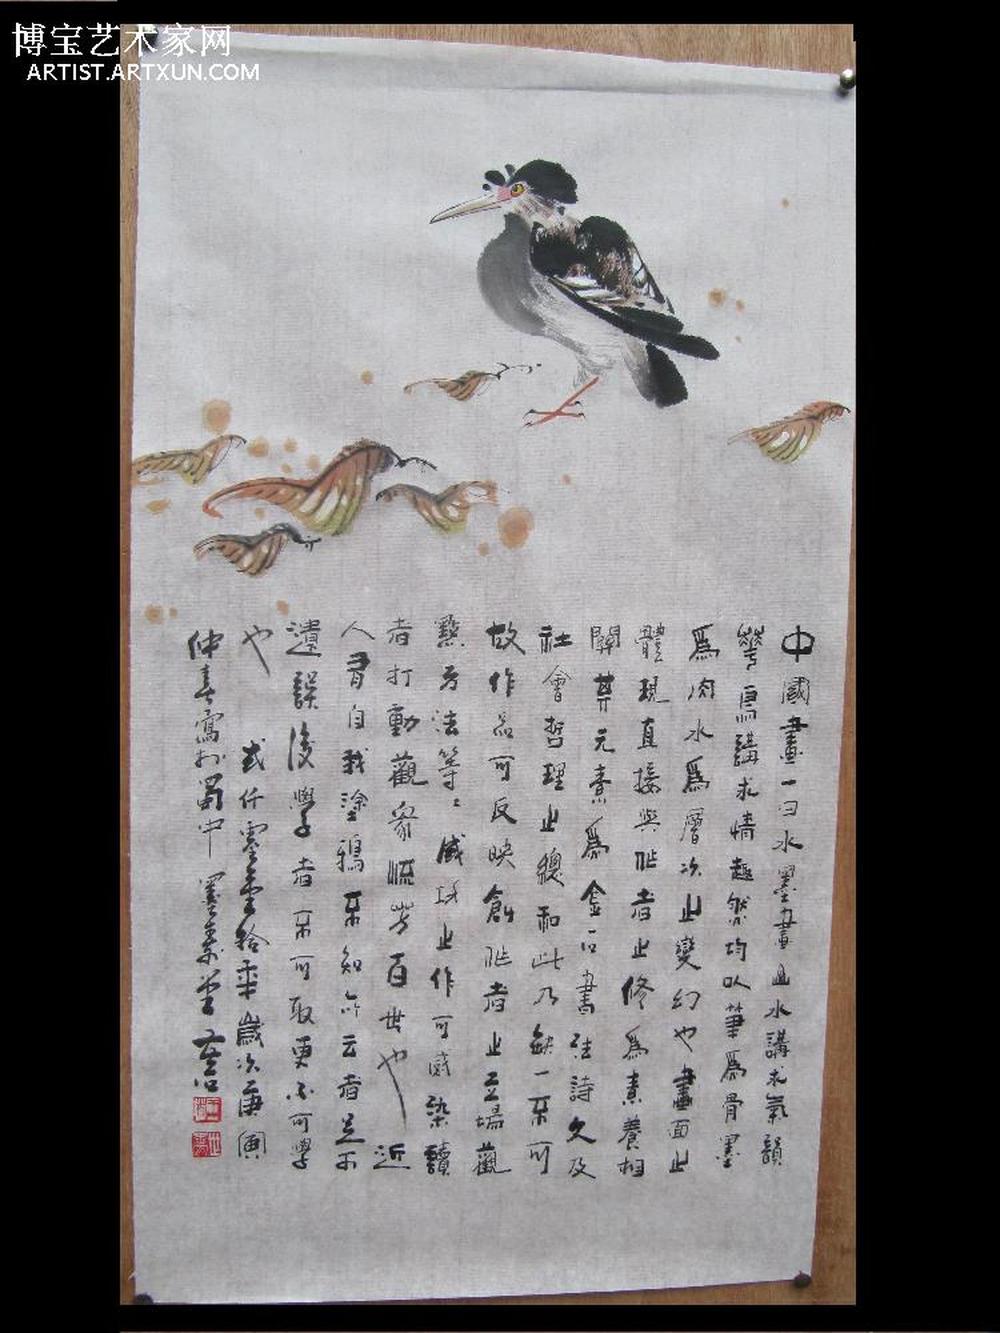 博宝艺术家网
ARTIST.ARTXUN.COM
中國畫一曰水墨畫山水講求氣韻
花鳥講求情趣然均以筆爲骨墨
爲肉水爲層次止變幻也畫面止
體現直接與作者止修爲素養相
關其元素爲金石書法詩文及
社會哲理止總和此乃缺一不可
故作品可反映創作者止立場觀
點方法等等成功止作可感染讀
者打動觀衆流芳百世也近
人有自我塗鴉不知所云者是不
遺誤後學者不可取更不可學
也 貳仟零壹拾年歲次庚寅
仲春寫於蜀中墨